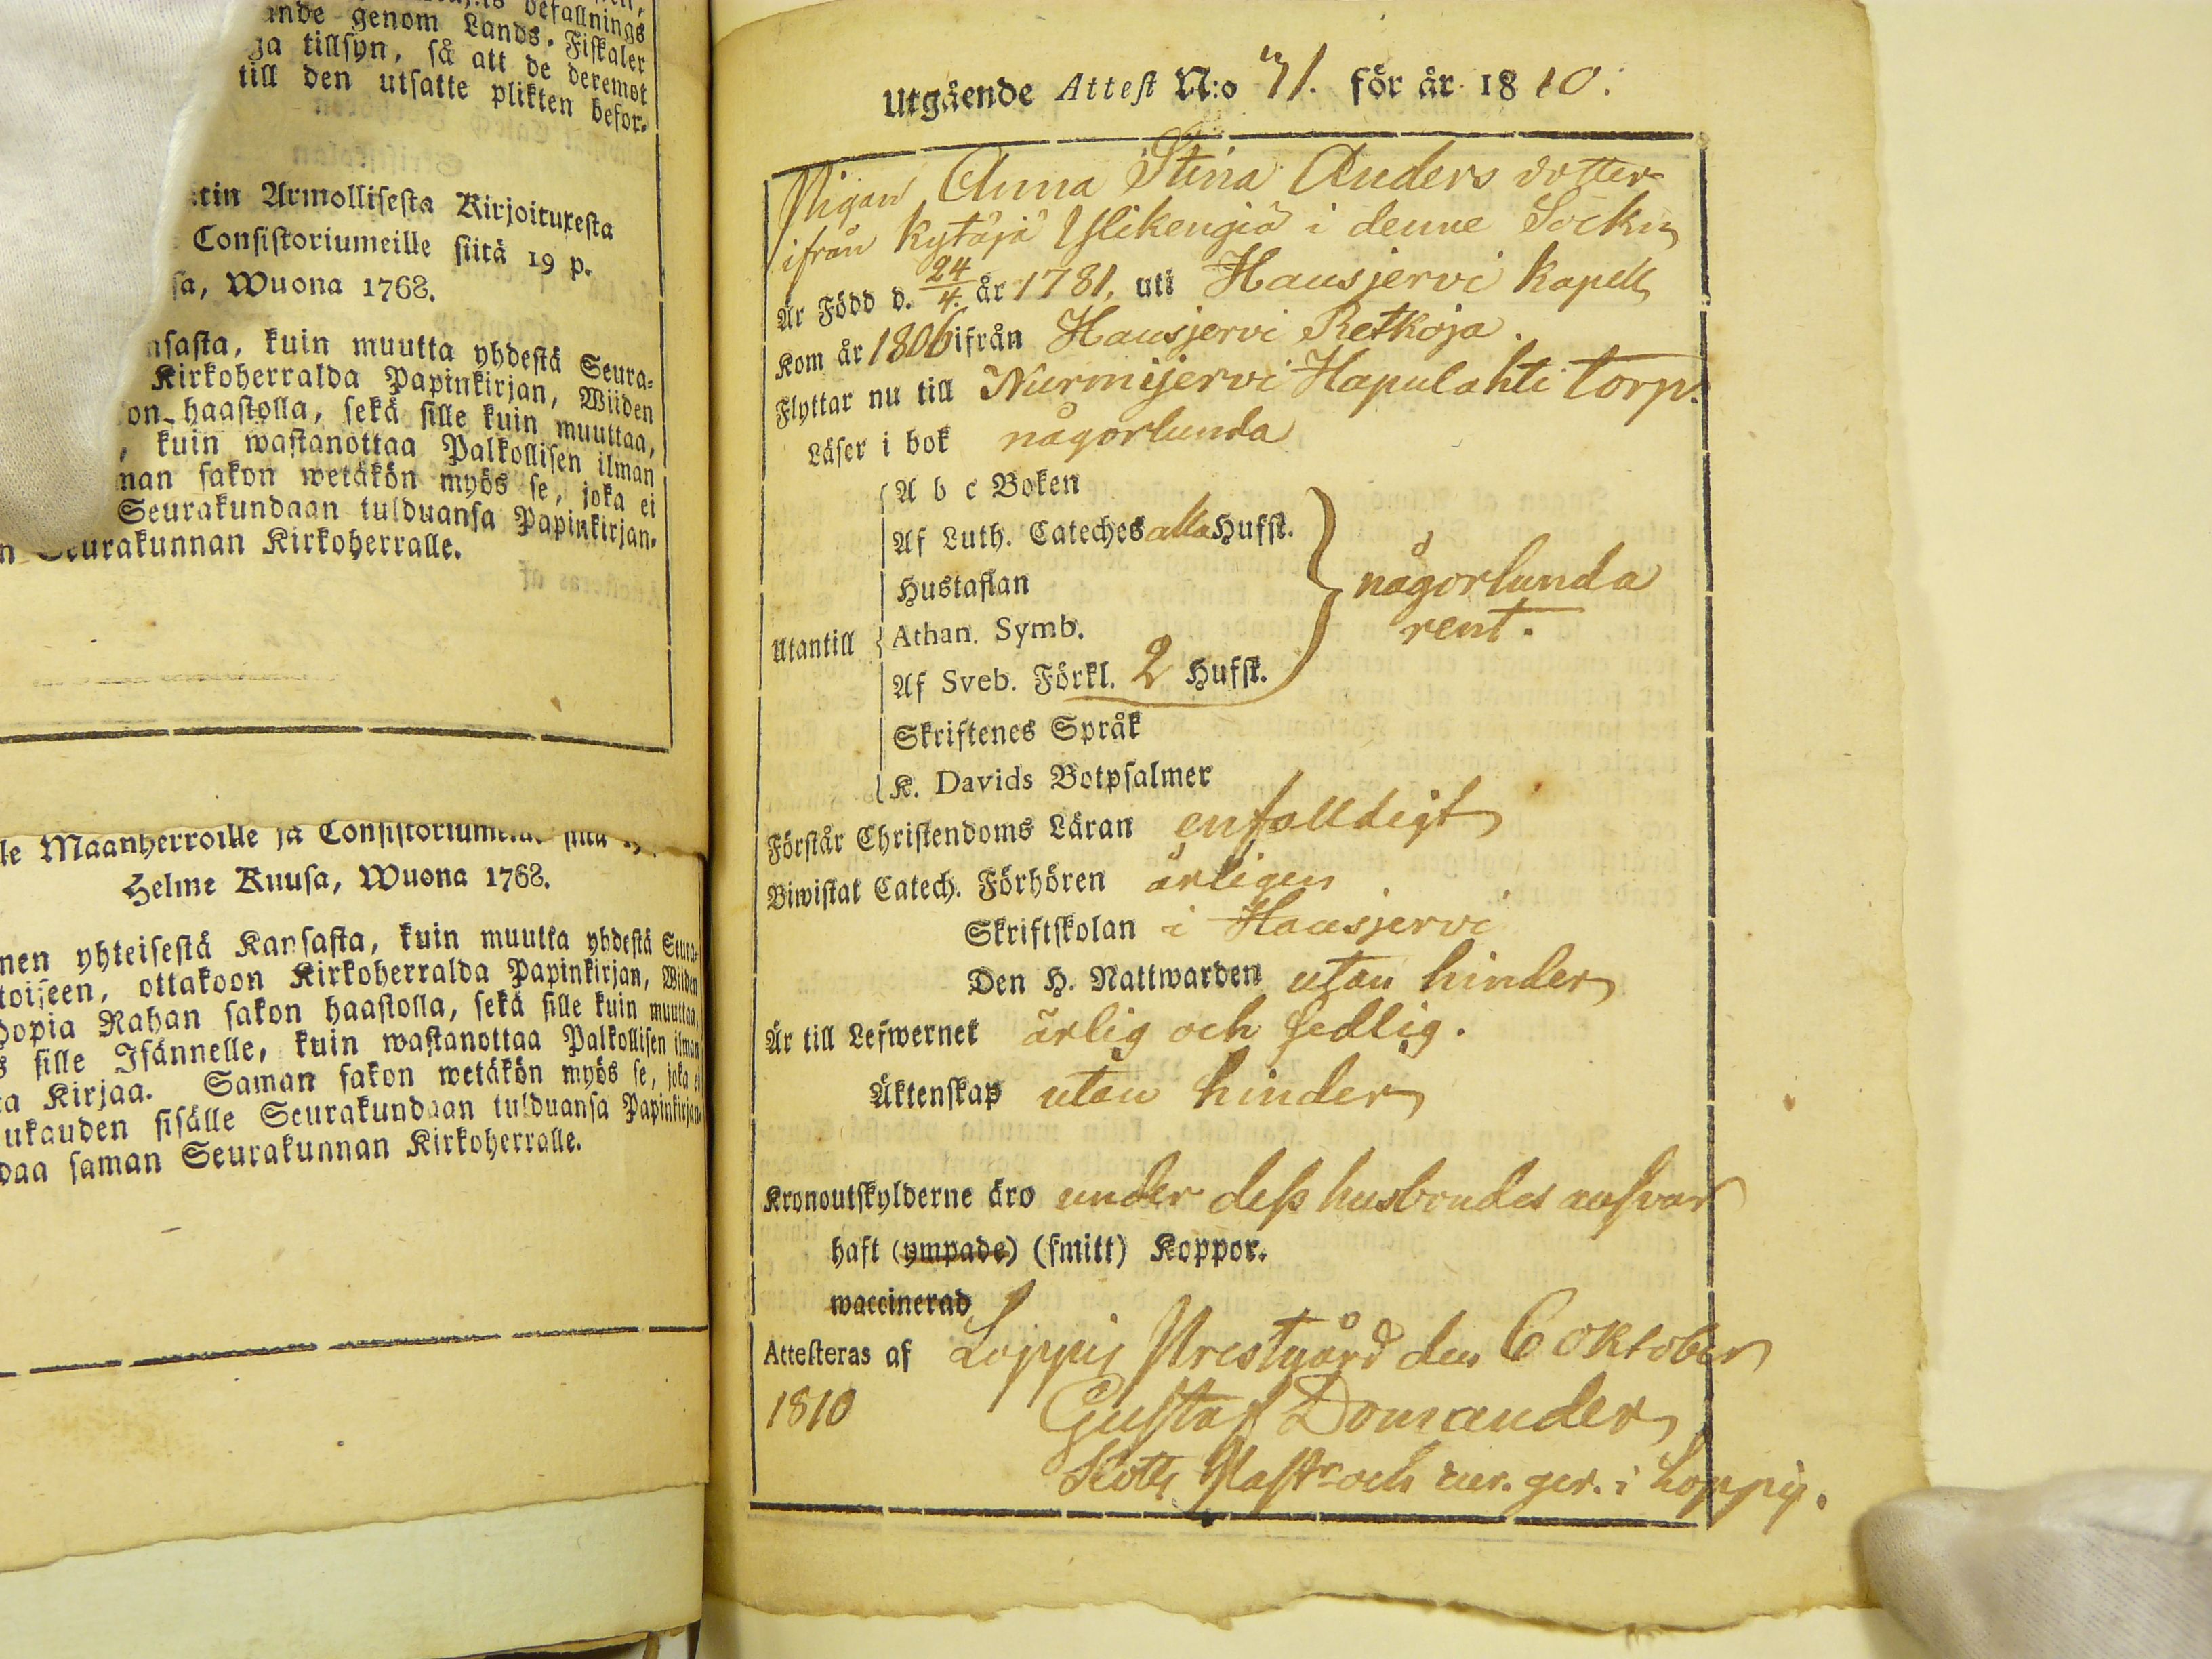 befallnings
ande genom Lands-Fiskaler
ga tillsyn, så att de deremot
till den utsatte plikten befor-
tin Armollisesta Kirjoituxesta
Consistoriumeille siitä 19 p.
sa, Wuona 1768.
nsasta, kuin muutta yhdestä Seura-
Kirkoherralda Papinkirjan, Wiiden
on haastolla, sekä sille kuin muuttaa,
, kuin wastanottaa Palkollisen ilman
man sakon wetäkön myös se, joka ei
Seurakundaan tulduansa Papinkirjan-
n Seurakunnan Kirkoherralle.
le Maanherroille ja Consistoriumeille siitä
Helme Kuusa, Wuona 1768.
nen yhteisestä Kansasta, kuin muutta yhdestä Seura-
toiseen, ottakoon Kirkoherralda Papinkirjan, Wiiden
Hopia Rahan sakon haastolla, sekä sille kuin muuttaa,
s sille Isännelle, kuin wastanottaa Palkollisen ilman
ta Kirjaa. Saman sakon wetäkön myös se, joka ei
ukauden sisälle Seurakundaan tulduansa Papinkirjan-
daa saman Seurakunnan Kirkoherralle.
Utgående Attest N:o 71. för år 1810.
Pigan Anna Stina Anders dotter
ifrån Kytäjä Ylikengiä i denne Sockn
Är Född d. 24/4. år 1781. uti Hausjervi Kapell
Kom år 1806 ifrån Hausjervi Retkoja.
Flyttar nu till Nurmijervi Hapulahti torp.
Läser i bok någorlunda
A b c Boken
Af Luth. Cateches alla Hufst.
Hustaflan
någorlunda
rent.
Utantill Athan. Symb.
Af Sveb. Förkl. 2 Hufst.
Skriftenes Språk
K. Davids Botpsalmer
Förstår Christendoms Läran enfalldigt
Biwistat Catech. Förhören årligen
Skriftskolan i Hausjervi
Den H. Nattwarden utan hinder
Är till Lefwernet ärlig och sedlig.
Äktenskap utan hinder
Kronoutskylderne äro under dess husbondes ansvar
haft (ympade) (smitt) Koppor.
waccinerad
Attesteras af Loppis Prestgård den 6 Oktober
1810 Gustaf Domander
Past. och cur. ger. i Loppis.